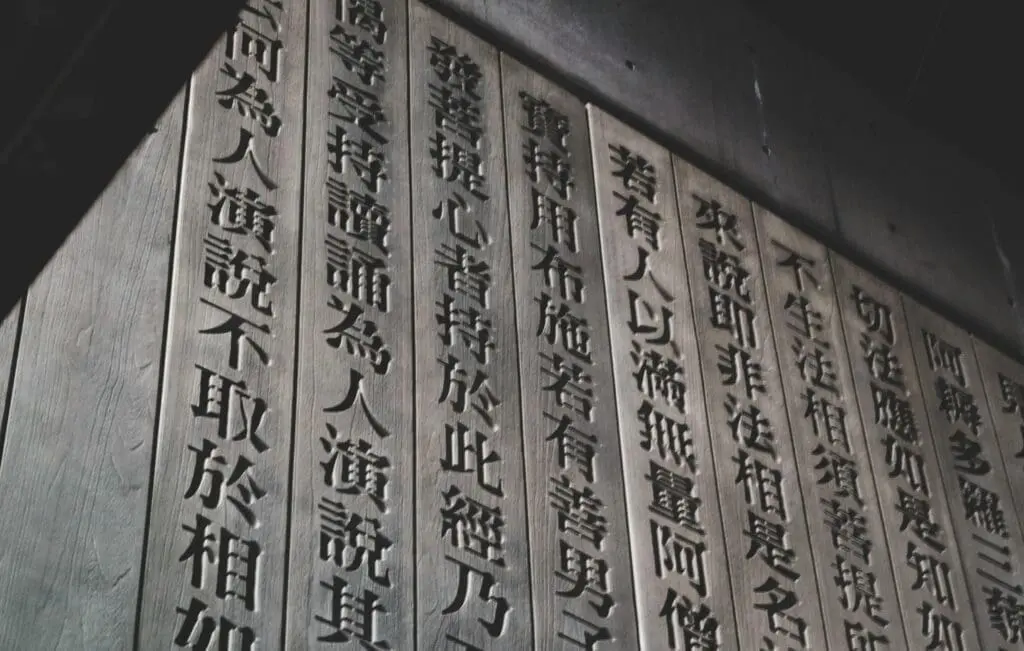 阿耨多羅三藐
切法應如是知如
不生法相須菩提所
來說即非法相是名
若有人以滿無量阿僧
寶持用布施若有善男子
發菩提心者持於此經乃
偈等受持讀誦為人演說其
云何為人演說不取於相如